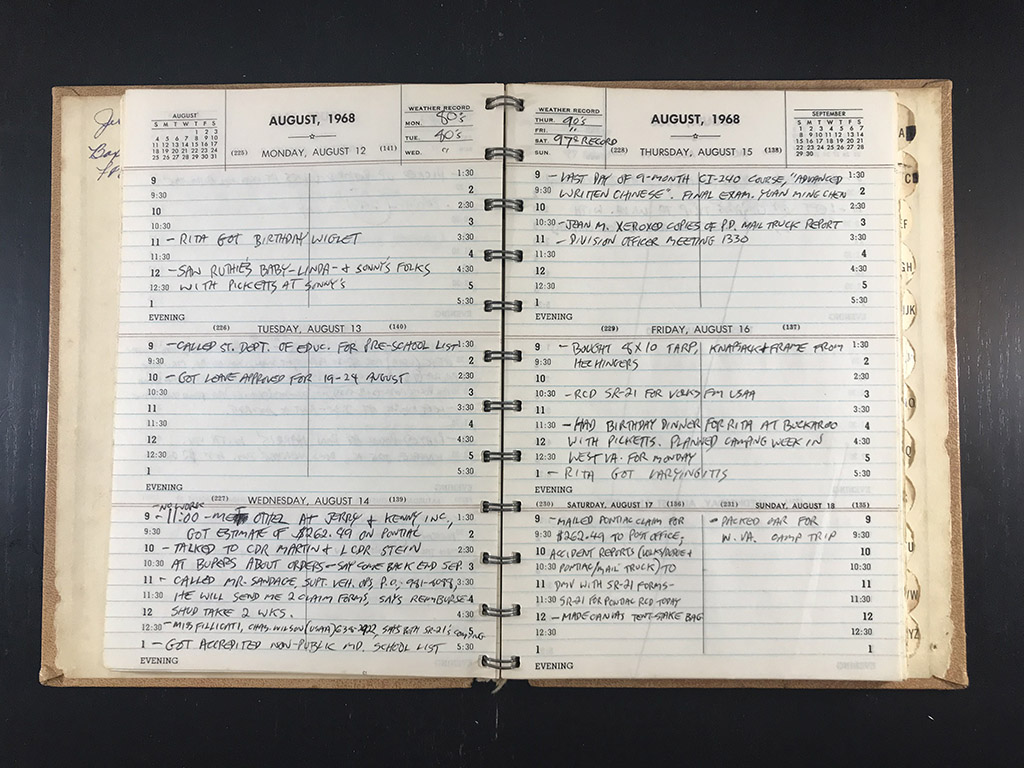 AUGUST
S M T W T F S
1 2 3
4 5 6 7 8 9 10
11 12 13 14 15 16 17
18 19 20 21 22 23 24
25 26 27 28 29 30 31
AUGUST, 1968
WEATHER RECORD
MON. 80's
TUE. 90's
WED. "
(225) MONDAY, AUGUST 12 (141)
9 1:30
9:30 2
10 2:30
10:30 3
11 - RITA GOT BIRTHDAY WIGLET 3:30
11:30 4
12 - SAW RUTHIE'S BABY - LINDA - & SONNY'S FOLKS 4:30
12:30 WITH PICKETTS AT SONNY'S 5
1 5:30
EVENING
(226) TUESDAY, AUGUST 13 (140)
9 - CALLED ST. DEPT. OF EDUC. FOR PRE-SCHOOL LIST 1:30
9:30 2
10 - GOT LEAVE APPROVED FOR 19-24 AUGUST 2:30
10:30 3
11 3:30
11:30 4
12 4:30
12:30 5
1 5:30
EVENING
(227) WEDNESDAY, AUGUST 14 (139)
- NO WORK
9 - 11:00 - MET OTHER AT JERRY & KENNY INC, 1:30
9:30 GOT ESTIMATE OF $262.49 ON PONTIAC 2
10 - TALKED TO CDR MARTIN & LCDR STEIN 2:30
10:30 AT BUPERS ABOUT ORDERS - SAY COME BACK END SEP. 3
11 - CALLED MR. SANDAGE, SUPT. VEH. OPS, P.O., 981-4088, 3:30
11:30 HE WILL SEND ME 2 CLAIM FORMS, SAYS REIMBURSE 4
12 SHUD TAKE 2 WKS. 4:30
12:30 - MISS FILLICATI, CHAS. WILSON (USAA) SAYS BOTH SR-21's COMING 5
1 - GOT ACCREDITED NON-PUBLIC MD. SCHOOL LIST 5:30
EVENING
WEATHER RECORD
THUR. 90's
FRI. "
SAT. 97° RECORD
SUN.
AUGUST, 1968
SEPTEMBER
S M T W T F S
1 2 3 4 5 6 7
8 9 10 11 12 13 14
15 16 17 18 19 20 21
22 23 24 25 26 27 28
29 30
(228) THURSDAY, AUGUST 15 (138)
9 - LAST DAY OF 9-MONTH CI-240 COURSE, "ADVANCED 1:30
9:30 WRITTEN CHINESE". FINAL EXAM. YUAN MING CHEN 2
10 2:30
10:30 - JEAN M. XEROXED COPIES OF P.D. MAIL TRUCK REPORT 3
11 - DIVISION OFFICER MEETING 1330 3:30
11:30 4
12 4:30
12:30 5
1 5:30
EVENING
(229) FRIDAY, AUGUST 16 (137)
9 - BOUGHT 8X10 TARP, KNAPSACK & FRAME FROM 1:30
9:30 HECHINGERS 2
10 2:30
10:30 - RCD SR-21 FOR VOLKS FM USAA 3
11 3:30
11:30 - HAD BIRTHDAY DINNER FOR RITA AT BUCKAROO 4
12 WITH PICKETTS. PLANNED CAMPING WEEK IN 4:30
12:30 WEST VA. FOR MONDAY 5
1 - RITA GOT LARYINGITIS 5:30
EVENING
(230) SATURDAY, AUGUST 17 (136)
9 - MAILED PONTIAC CLAIM FOR
9:30 $262.49 TO POST OFFICE;
10 ACCIDENT REPORTS &
10:30 PONTIAC/MAIL TRUCK) TO
11 DMV WITH SR-21 FORMS -
11:30 SR-21 FOR PONTIAC RCD TODAY
12 - MADE CANVAS TENT-STAKE BAG
12:30
1
EVENING
(231) SUNDAY, AUGUST 18 (135)
- PACKED CAR FOR 9
W. VA. CAMP TRIP 9:30
10
10:30
11
11:30
12
12:30
1
A
C
EF
GH
IJK
O
Q
TU
VW
XYZ